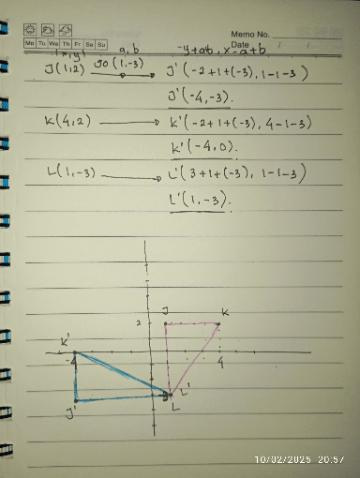 Memo No.
Mo Tu We Th Fr Sa Su
Date
(x,y) a,b -y+a+b, x-a+b
J(1,2) (1,-3) J'(-2+1+(-3), 1-1-3)
J'(-4,-3).
K(4,2) K'(-2+1+(-3), 4-1-3)
K'(-4,0).
L(1,-3) L'(3+1+(-3), 1-1-3)
L'(1,-3).
J K
2
K'
-4 4
L'
J' L
10/02/2025 20:57